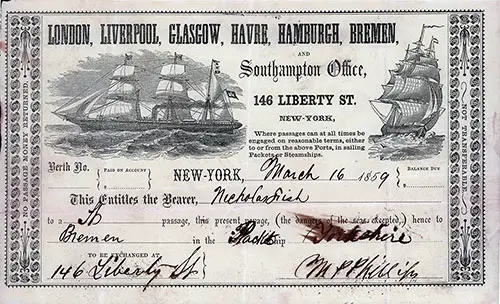 LONDON, LIVERPOOL, GLASGOW, HAVRE, HAMBURGH, BREMEN,
AND
Southampton Office,
146 LIBERTY ST.
NEW-YORK,
Where passages can at all times be
engaged on reasonable terms, either
to or from the above Ports, in sailing
Packets or Steamships.
NO PASSAGE MONEY RETURNED.
NOT TRANSFERABLE.
Berth No. PAID ON ACCOUNT NEW-YORK, March 16 1859 BALANCE DUE
This Entitles the Bearer, Nicholas Fish
to a St passage, this present voyage, (the dangers of the seas excepted,) hence to
Bremen in the Packet ship Yorkshire
TO BE EXCHANGED AT
146 Liberty St